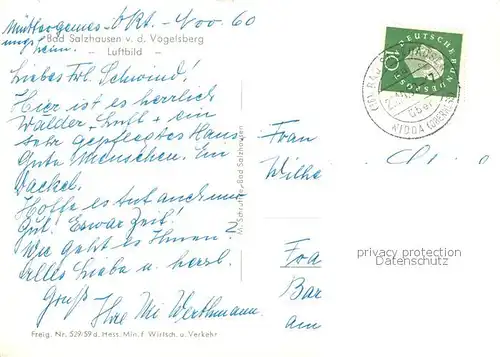 Müttergenes- Okt. - Nov. 60
ungsheim.
Bad Salzhausen v. d. Vogelsberg
- Luftbild -
Liebes Frl. Schwind!
Hier ist es herrlich
Wälder, Luft + ein
sehr gepflegtes Haus.
Gute Menschen. Ein
Dackel.
Hoffe es tut auch mir
Gut! Es war Zeit!
Wie geht es Ihnen?
Alles Liebe u. herzl.
Gruß
Ihre Mi Werthmann.
Freig. Nr. 529/59 d. Hess. Min. f. Wirtsch. u. Verkehr
Bad Salzhausen
DEUTSCHE BUNDESPOST
10
über
NIDDA
Frau
Wilhe
Fra
Bar
am
privacy protection
Datenschutz